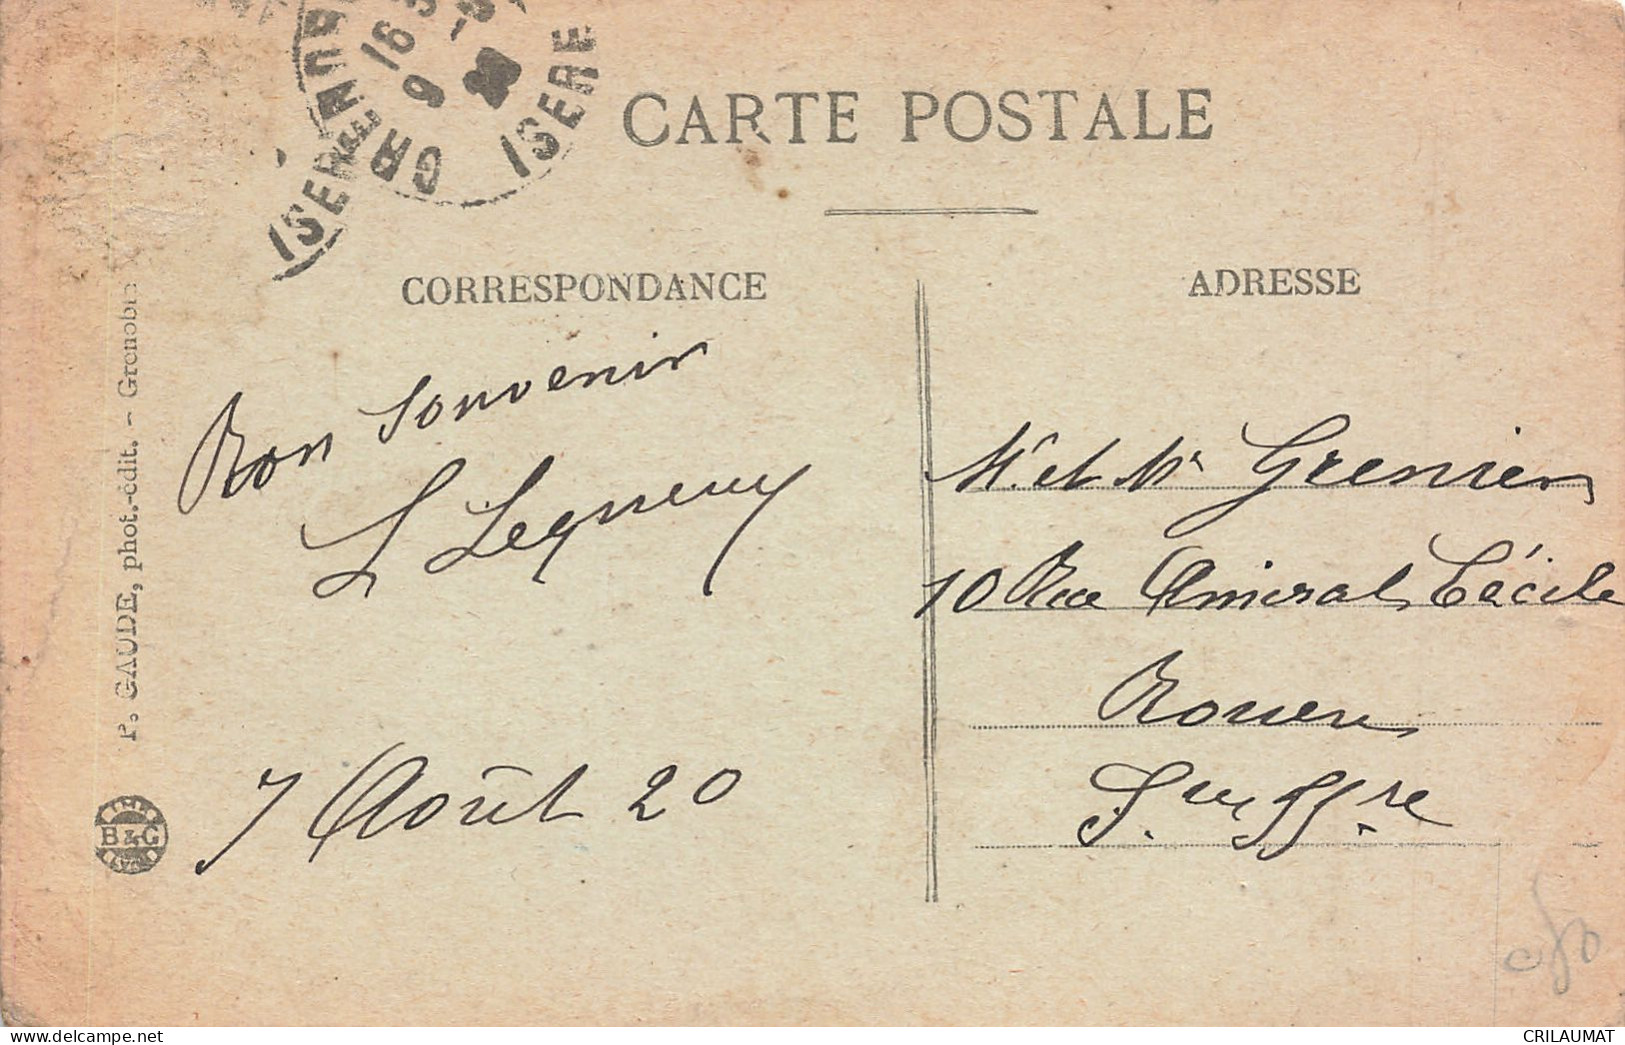 GRENOBLE
16
9
20
ISERE
ISERE
CARTE POSTALE
CORRESPONDANCE
ADRESSE
P. GAUDE, phot.-édit. - Grenoble
B & G
Bon souvenir
L Legueuy
7 Août 20
Mr et Me Grenier
10 Rue Amiral Cécile
Rouen
S. Inffre
delcampe.net
CRILAUMAT